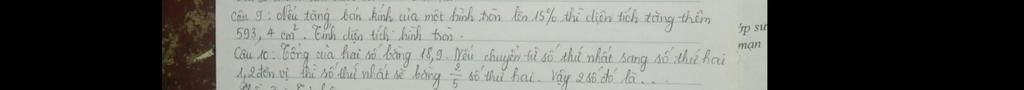 Câu 9: Nếu tăng bán kính của một hình tròn lên 15% thì diện tích tăng thêm
593,4 cm². Tính diện tích hình tròn.
Câu 10: Tổng của hai số bằng 18,9. Nếu chuyển từ số thứ nhất sang số thứ hai
1,2 đơn vị thì số thứ nhất sẽ bằng 2/5 số thứ hai. Vậy 2 số đó là ...